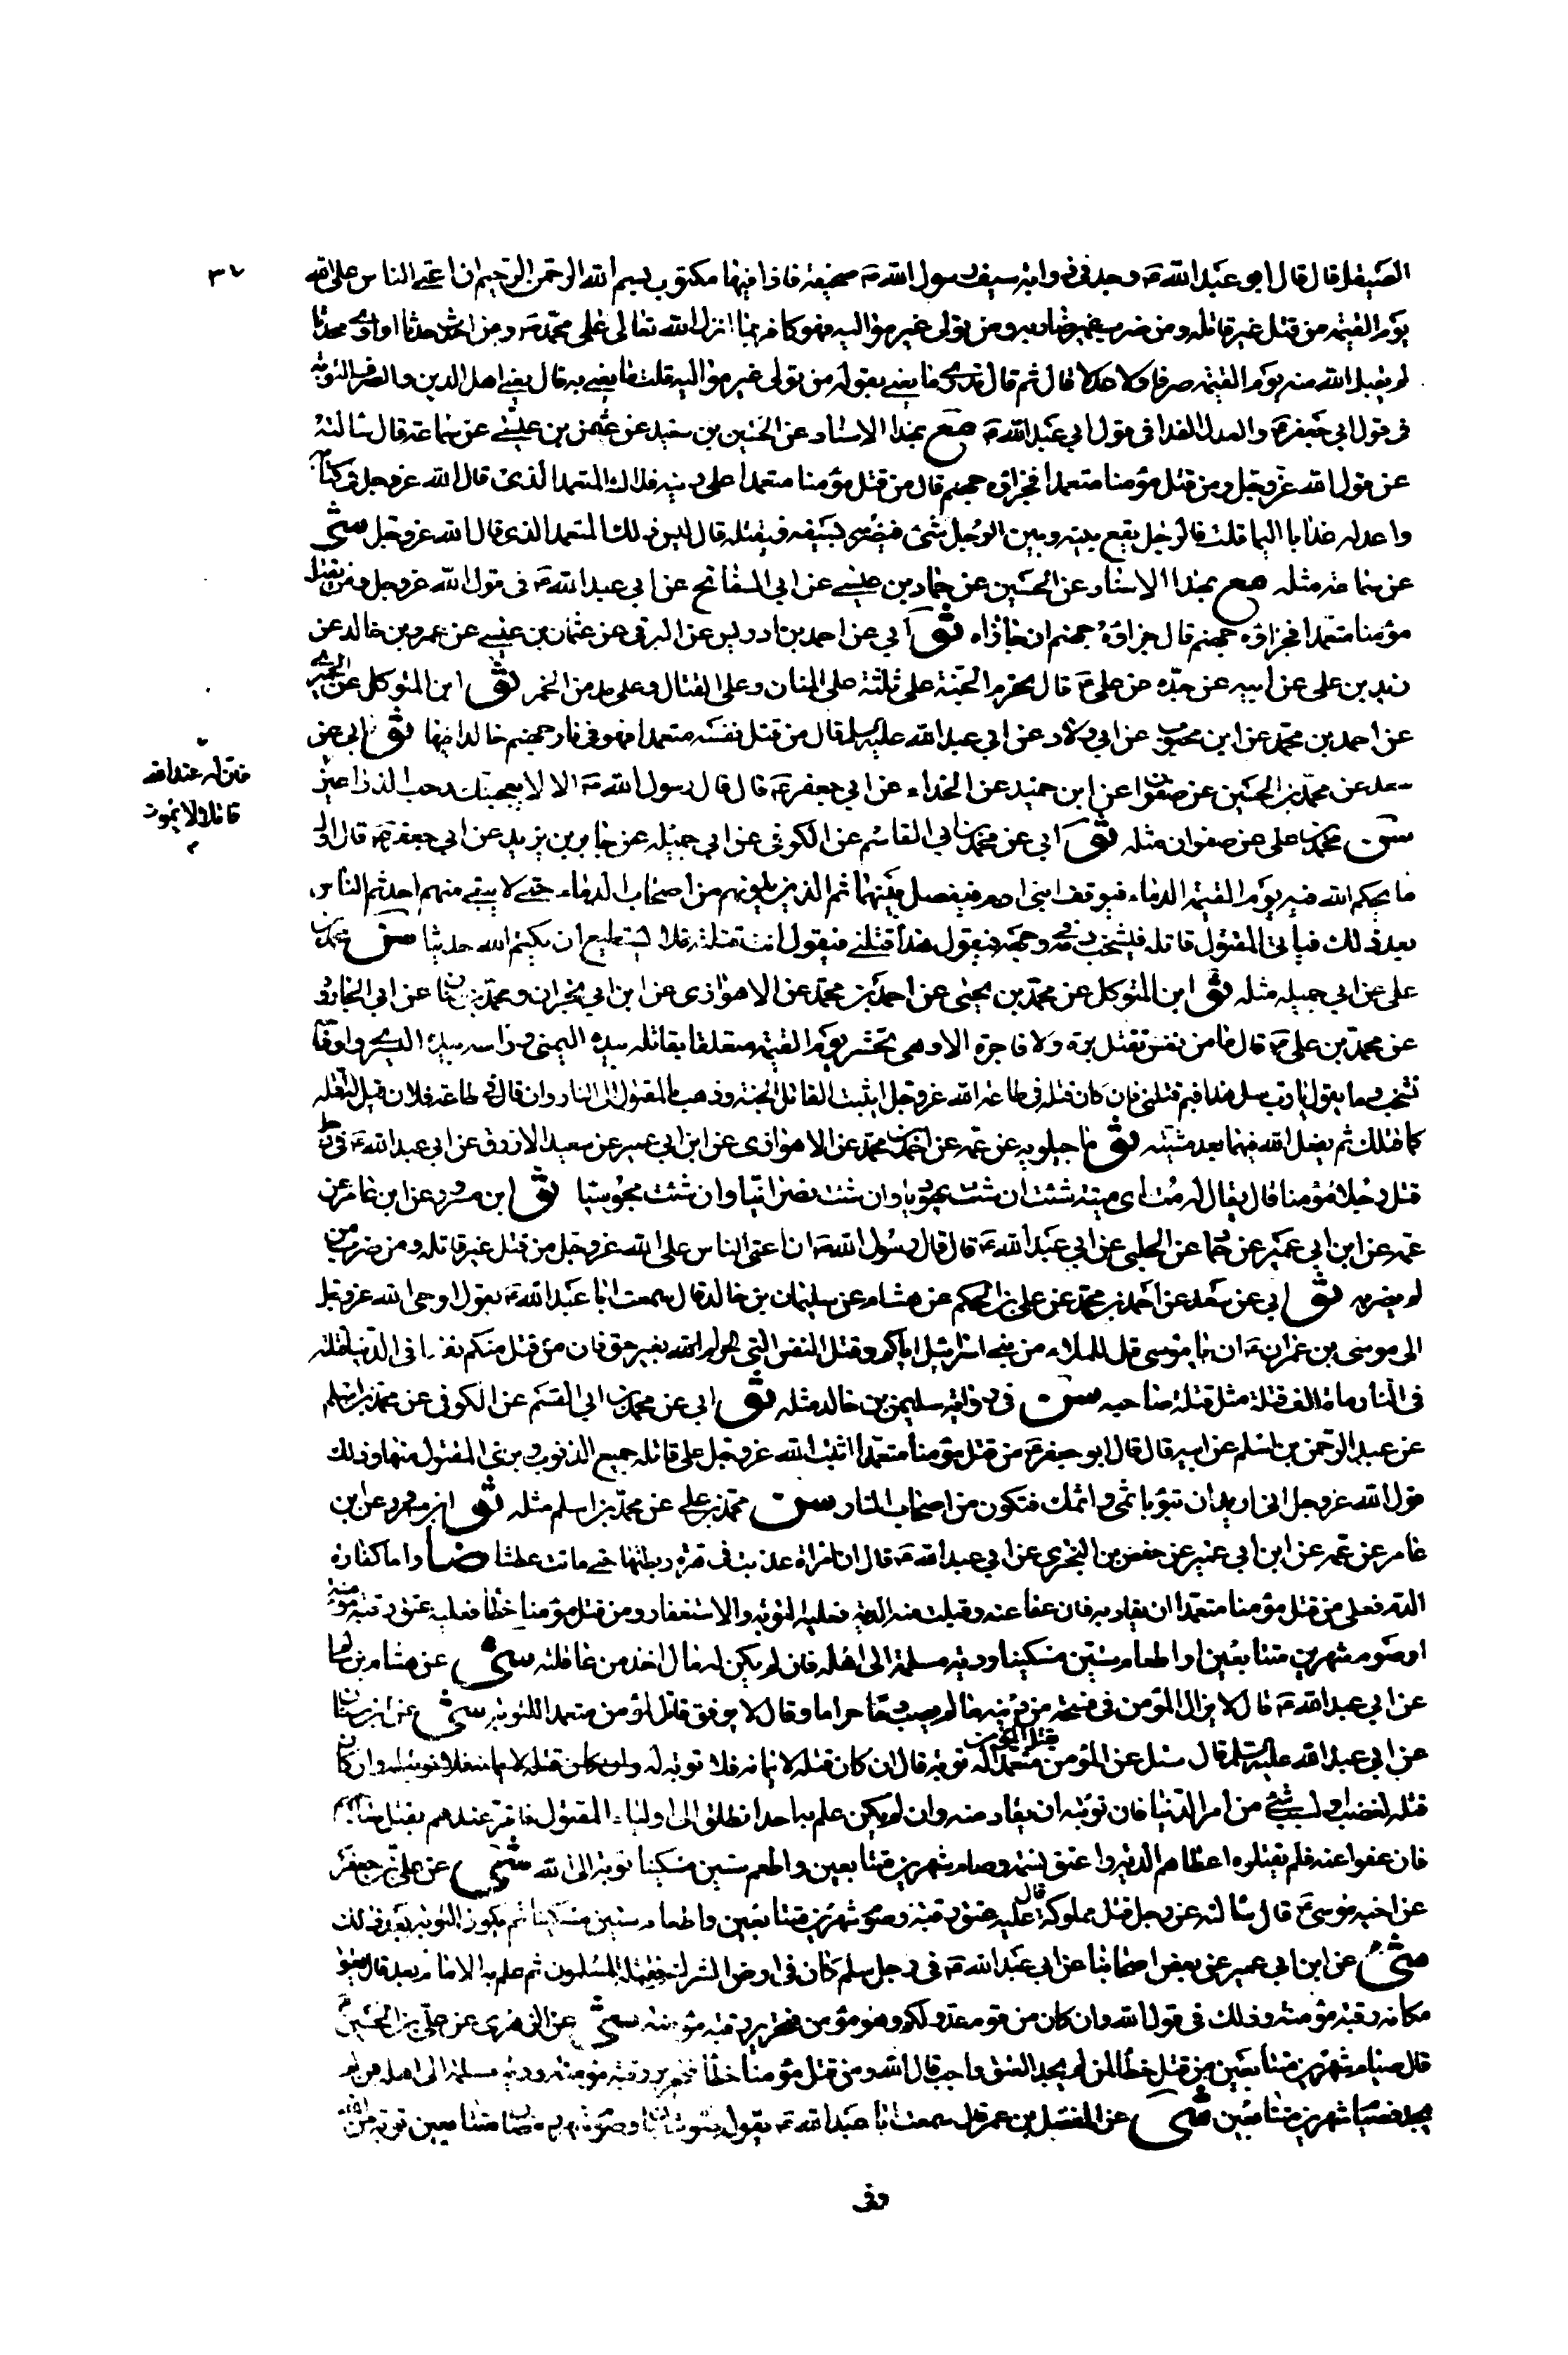 ٣٧
الصيقل قال قال ابو عبد الله ع وجد في ذوابة سيف رسول الله ص صحيفة فاذا فيها مكتوب بسم الله الرحمن الرحيم ان اعتى الناس على الله
يوم القيمة من قتل غير قاتله ومن ضرب غير ضاربه ومن تولى غير مواليه فهو كافر بما انزل الله تعالى على محمد ص ومن احدث حدثا او اوى محدثا
لم يقبل الله منه يوم القيمة صرفا ولا عدلا قال ثم قال تدري ما يعني بقوله من تولى غير مواليه قلت ما يعني به قال يعني اهل الدين والصرف التوبة
في قول ابي جعفر ع والعدل الفداء في قول ابي عبد الله ع مع بهذا الاسناد عن الحسين بن سعيد عن عثمن بن عيسى عن سماعة قال سالته
عن قول الله عز وجل ومن قتل مؤمنا متعمدا فجزاؤه جهنم قال من قتل مؤمنا متعمدا على دينه فذلك المتعمد الذي قال الله عز وجل في كتابه
واعد له عذابا اليما قلت فالرجل يقع بينه وبين الرجل شئ فيضربه بسيفه فيقتله قال ليس ذلك المتعمد الذي قال الله عز وجل شى
عن سماعة مثله مع بهذا الاسناد عن الحسين عن حماد بن عيسى عن ابي السفاتج عن ابي عبد الله ع في قول الله عز وجل ومن يقتل
مؤمنا متعمدا فجزاؤه جهنم قال جزاؤه جهنم ان جازاه ثو ابي عن احمد بن ادريس عن البرقي عن عثمان بن عيسى عن عمرو بن خالد عن
زيد بن علي عن ابيه عن جده عن علي ع قال تحرم الجنة على ثلثة على المنان وعلى القتال وعلى مدمن الخمر ثو ابن المتوكل عن الحميري
عن احمد بن محمد عن ابن محبوب عن ابي ولاد عن ابي عبد الله عليه السلم قال من قتل نفسه متعمدا فهو في نار جهنم خالدا فيها ثو ابي عن
سعد عن محمد بن الحسين عن صفوان عن ابن حميد عن الحذاء عن ابي جعفر ع قال قال رسول الله ص الا لا يعجبك رحب الذراعين
فان له عند الله
قاتلا لا يموت
سن محمد بن علي عن صفوان مثله ثو ابي عن محمد بن ابي القاسم عن الكوفي عن ابي جميلة عن جابر بن يزيد عن ابي جعفر ع قال اول
ما يحكم الله فيه يوم القيمة الدماء فيوقف ابني ادم فيفصل بينهما ثم الذين يلونهم من اصحاب الدماء حتى لا يبقى منهم احد ثم الناس
بعد ذلك فياتي المقتول قاتله فيشخب دمه في وجهه فيقول هذا قتلني فيقول انت قتلته فلا يستطيع ان يكتم الله حديثا سن محمد بن
علي عن ابي جميلة مثله ثو ابن المتوكل عن محمد بن يحيى عن احمد بن محمد عن الاهوازي عن ابن ابي نجران ومحمد بن سنان عن ابي الجارود
عن محمد بن علي ع قال ما من نفس تقتل برة ولا فاجرة الا وهي تحشر يوم القيمة متعلقا بقاتله بيده اليمنى وراسه بيده اليسرى واوداجه
تشخب دما يقول يا رب سل هذا فيم قتلني فان كان قتله في طاعة الله عز وجل اثيب القاتل الجنة وذهب بالمقتول الى النار وان قال في طاعة فلان قيل له اقتله
كما قتلك ثم يفعل الله فيهما بعد مشيته ثو ماجيلويه عن عمه عن احمد بن محمد عن الاهوازي عن ابن ابي عمير عن سعيد الازرق عن ابي عبد الله ع في رجل
قتل رجلا مؤمنا قال يقال له مت اي ميتة شئت ان شئت يهوديا وان شئت نصرانيا وان شئت مجوسيا ثو ابن مسرور عن ابن عامر عن
عمه عن ابن ابي عمير عن حماد عن الحلبي عن ابي عبد الله ع قال قال رسول الله ص ان اعتى الناس على الله عز وجل من قتل غير قاتله ومن ضرب من
لم يضربه ثو ابي عن سعد عن احمد بن محمد عن علي بن الحكم عن هشام عن سليمان بن خالد قال سمعت ابا عبد الله ع يقول اوحى الله عز وجل
الى موسى بن عمران ع ان يا موسى قل للملاء من بني اسرائيل اياكم وقتل النفس التي حرم الله بغير حق فان من قتل منكم نفسا في الدنيا قتلته
في النار مائة الف قتلة مثل قتلة صاحبه سن في رواية سليمن بن خالد مثله ثو ابي عن محمد بن ابي القسم عن الكوفي عن محمد بن اسلم
عن عبد الرحمن بن اسلم عن ابيه قال قال ابو جعفر ع من قتل مؤمنا متعمدا اثبت الله عز وجل على قاتله جميع الذنوب وبرئ المقتول منها وذلك
قول الله عز وجل اني اريد ان تبوء باثمي واثمك فتكون من اصحاب النار سن محمد بن علي عن محمد بن اسلم مثله ثو ابن مسرور عن ابن
عامر عن عمه عن ابن ابي عمير عن حفص بن البختري عن ابي عبد الله ع قال ان امراة عذبت في هرة ربطتها حتى ماتت عطشا ضا واما كفارة
الدم فعلى من قتل مؤمنا متعمدا ان يقاد به فان عفا عنه وقبلت منه الدية فعليه التوبة والاستغفار ومن قتل مؤمنا خطأ فعليه عتق رقبة مؤمنة
او صوم شهرين متتابعين او اطعام ستين مسكينا ودية مسلمة الى اهله فان لم يكن له مال اخذ من عاقلته شى عن هشام بن سالم
عن ابي عبد الله ع قال لا يزال المؤمن في فسحة من دينه ما لم يصب دما حراما وقال لا يوفق قاتل المؤمن متعمدا للتوبة شى عن ابن سنان
عن ابي عبد الله عليه السلم قال سئل عن المؤمن يقتل المؤمن متعمدا له توبة قال ان كان قتله لايمانه فلا توبة له وان كان
قتله لغضب او لسبب شئ من امر الدنيا فان توبته ان يقاد منه وان لم يكن علم به احد انطلق الى اولياء المقتول فاقر عندهم بقتل صاحبهم
فان عفوا عنه فلم يقتلوه اعطاهم الدية واعتق نسمة وصام شهرين متتابعين واطعم ستين مسكينا توبة الى الله شى عن علي بن جعفر
عن اخيه موسى ع قال سالته عن رجل قتل مملوكه قال عليه عتق رقبة وصوم شهرين متتابعين واطعام ستين مسكينا ثم يكون التوبة بعد ذلك
شى عن ابن ابي عمير عن بعض اصحابنا عن ابي عبد الله ع في رجل مسلم كان في ارض الشرك فقتله المسلمون ثم علم به الامام بعد قال يعتق
مكانه رقبة مؤمنة وذلك في قول الله وان كان من قوم عدو لكم وهو مؤمن فتحرير رقبة مؤمنة شى عن الزهري عن علي بن الحسين ع
قال صيام شهرين متتابعين من قتل خطأ لمن لم يجد العتق واجب قال الله ومن قتل مؤمنا خطأ فتحرير رقبة مؤمنة ودية مسلمة الى اهله فمن لم
يجد فصيام شهرين متتابعين شى عن المفضل بن عمر قال سمعت ابا عبد الله ع يقول متتابعين توبة من الله
وفي